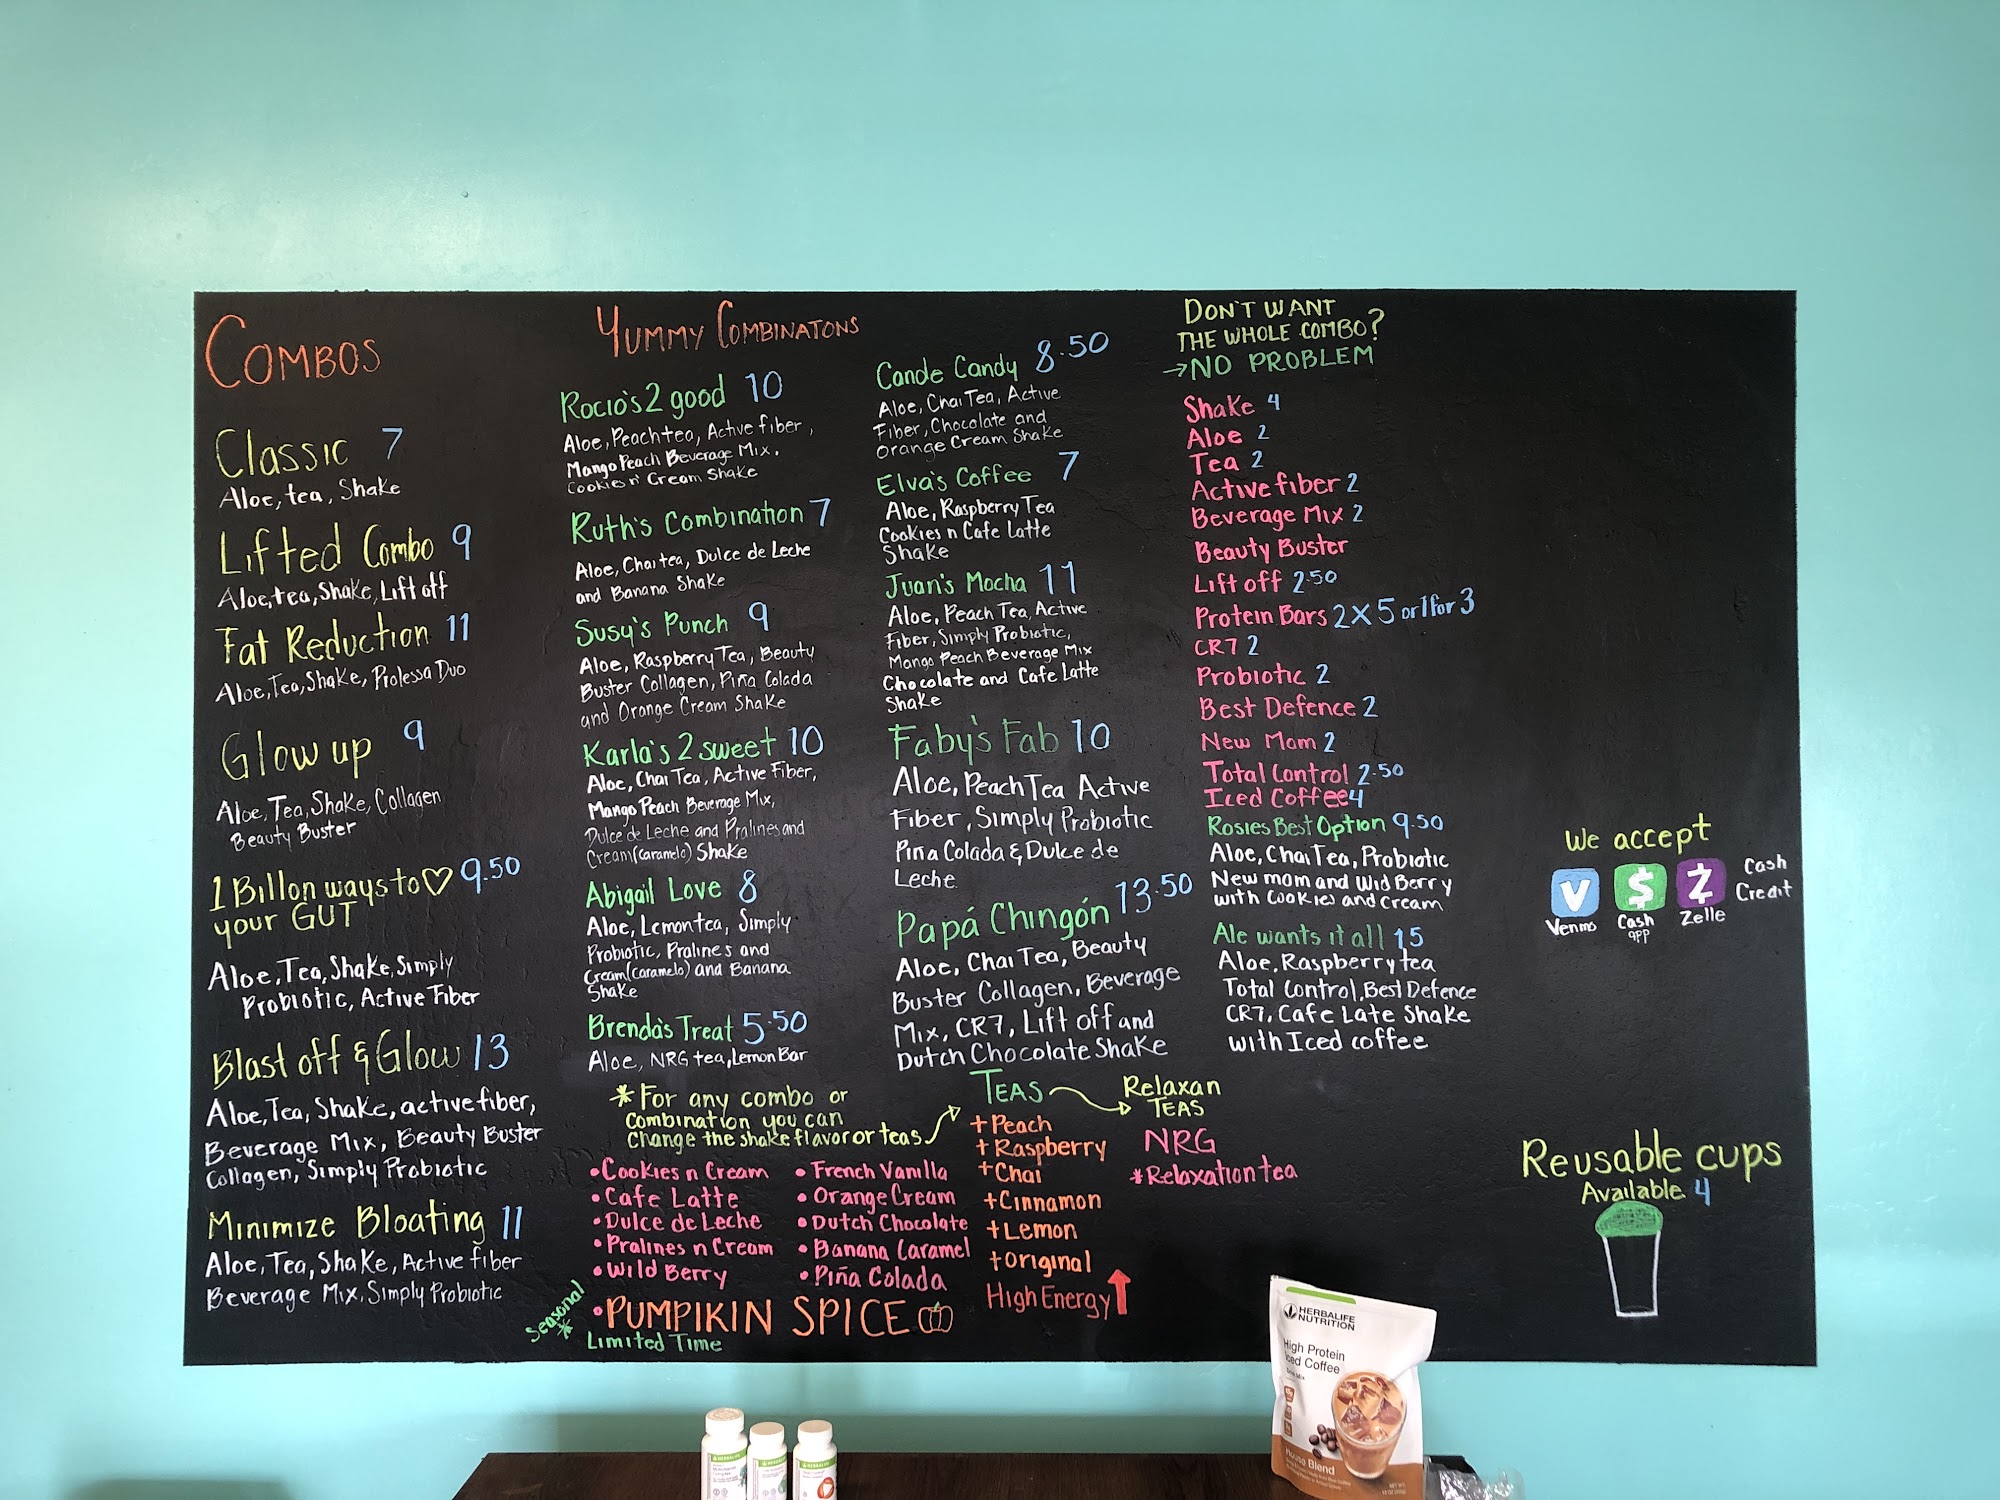 COMBOS
Classic 7
Aloe, tea, Shake
Lifted Combo 9
Aloe, tea, Shake, Lift off
Fat Reduction 11
Aloe, Tea, Shake, Prolessa Duo
Glow up 9
Aloe, Tea, Shake, Collagen
Beauty Buster
1 Billon ways to ♡ 9.50
your GUT
Aloe, Tea, Shake, Simply
Probiotic, Active Fiber
Blast off & Glow 13
Aloe, Tea, Shake, active fiber,
Beverage Mix, Beauty Buster
Collagen, Simply Probiotic
Minimize Bloating 11
Aloe, Tea, Shake, Active fiber
Beverage Mix, Simply Probiotic
YUMMY COMBINATONS
Rocio's 2 good 10
Aloe, Peach tea, Active fiber,
Mango Peach Beverage Mix,
Cookies n' Cream Shake
Ruth's Combination 7
Aloe, Chai tea, Dulce de Leche
and Banana Shake
Susy's Punch 9
Aloe, Raspberry Tea, Beauty
Buster Collagen, Piña Colada
and Orange Cream Shake
Karla's 2 sweet 10
Aloe, Chai Tea, Active Fiber,
Mango Peach Beverage Mix,
Dulce de Leche and Pralines and
Cream (caramelo) Shake
Abigail Love 8
Aloe, Lemon tea, Simply
Probiotic, Pralines and
Cream (caramelo) and Banana
Shake
Brenda's Treat 5.50
Aloe, NRG tea, Lemon Bar
Cande Candy 8.50
Aloe, Chai Tea, Active
Fiber, Chocolate and
Orange Cream Shake
Elva's Coffee 7
Aloe, Raspberry Tea
Cookies n Cafe Latte
Shake
Juan's Mocha 11
Aloe, Peach Tea, Active
Fiber, Simply Probiotic,
Mango Peach Beverage Mix
Chocolate and Cafe Latte
Shake
Faby's Fab 10
Aloe, Peach Tea Active
Fiber, Simply Probiotic
Pina Colada & Dulce de
Leche
Papá Chingón 13.50
Aloe, Chai Tea, Beauty
Buster Collagen, Beverage
Mix, CR7, Lift off and
Dutch Chocolate Shake
*For any combo or
Combination you can
change the shake flavor or teas
• Cookies n Cream
• Cafe Latte
• Dulce de Leche
• Pralines n Cream
• Wild Berry
• French Vanilla
• Orange Cream
• Dutch Chocolate
• Banana Caramel
• Piña Colada
Seasonal *
• PUMPIKIN SPICE
Limited Time
TEAS
+Peach
+Raspberry
+Chai
+Cinnamon
+Lemon
+original
High Energy
Relaxan
TEAS
NRG
*Relaxation tea
DON'T WANT
THE WHOLE COMBO?
→NO PROBLEM
Shake 4
Aloe 2
Tea 2
Active fiber 2
Beverage Mix 2
Beauty Buster
Lift off 2.50
Protein Bars 2 X 5 or 1 for 3
CR7 2
Probiotic 2
Best Defence 2
New Mom 2
Total Control 2.50
Iced Coffee 4
Rosies Best Option 9.50
Aloe, Chai Tea, Probiotic
New mom and Wid Berry
with cookies and cream
Ale wants it all 15
Aloe, Raspberry tea
Total Control, Best Defence
CR7, Cafe Late Shake
with Iced coffee
We accept
V $ Z
Venmo
Cash
app
Zelle
Cash
Credit
Reusable cups
Available 4
HERBALIFE
NUTRITION
High Protein
Iced Coffee
House Blend
HERBALIFE
HERBALIFE
HERBALIFE